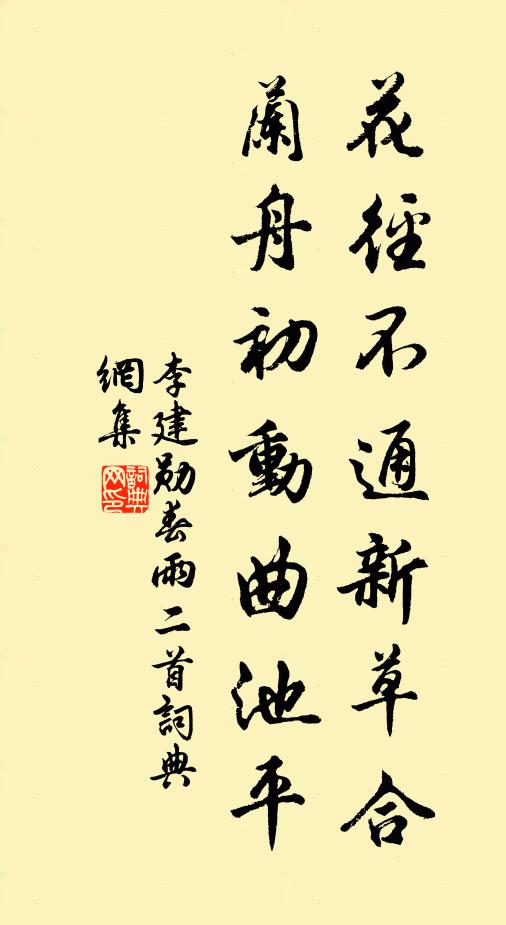 花徑不通新草合
蘭舟初動曲池平
李建勛春雨二首詞典
網集
詞典
网印